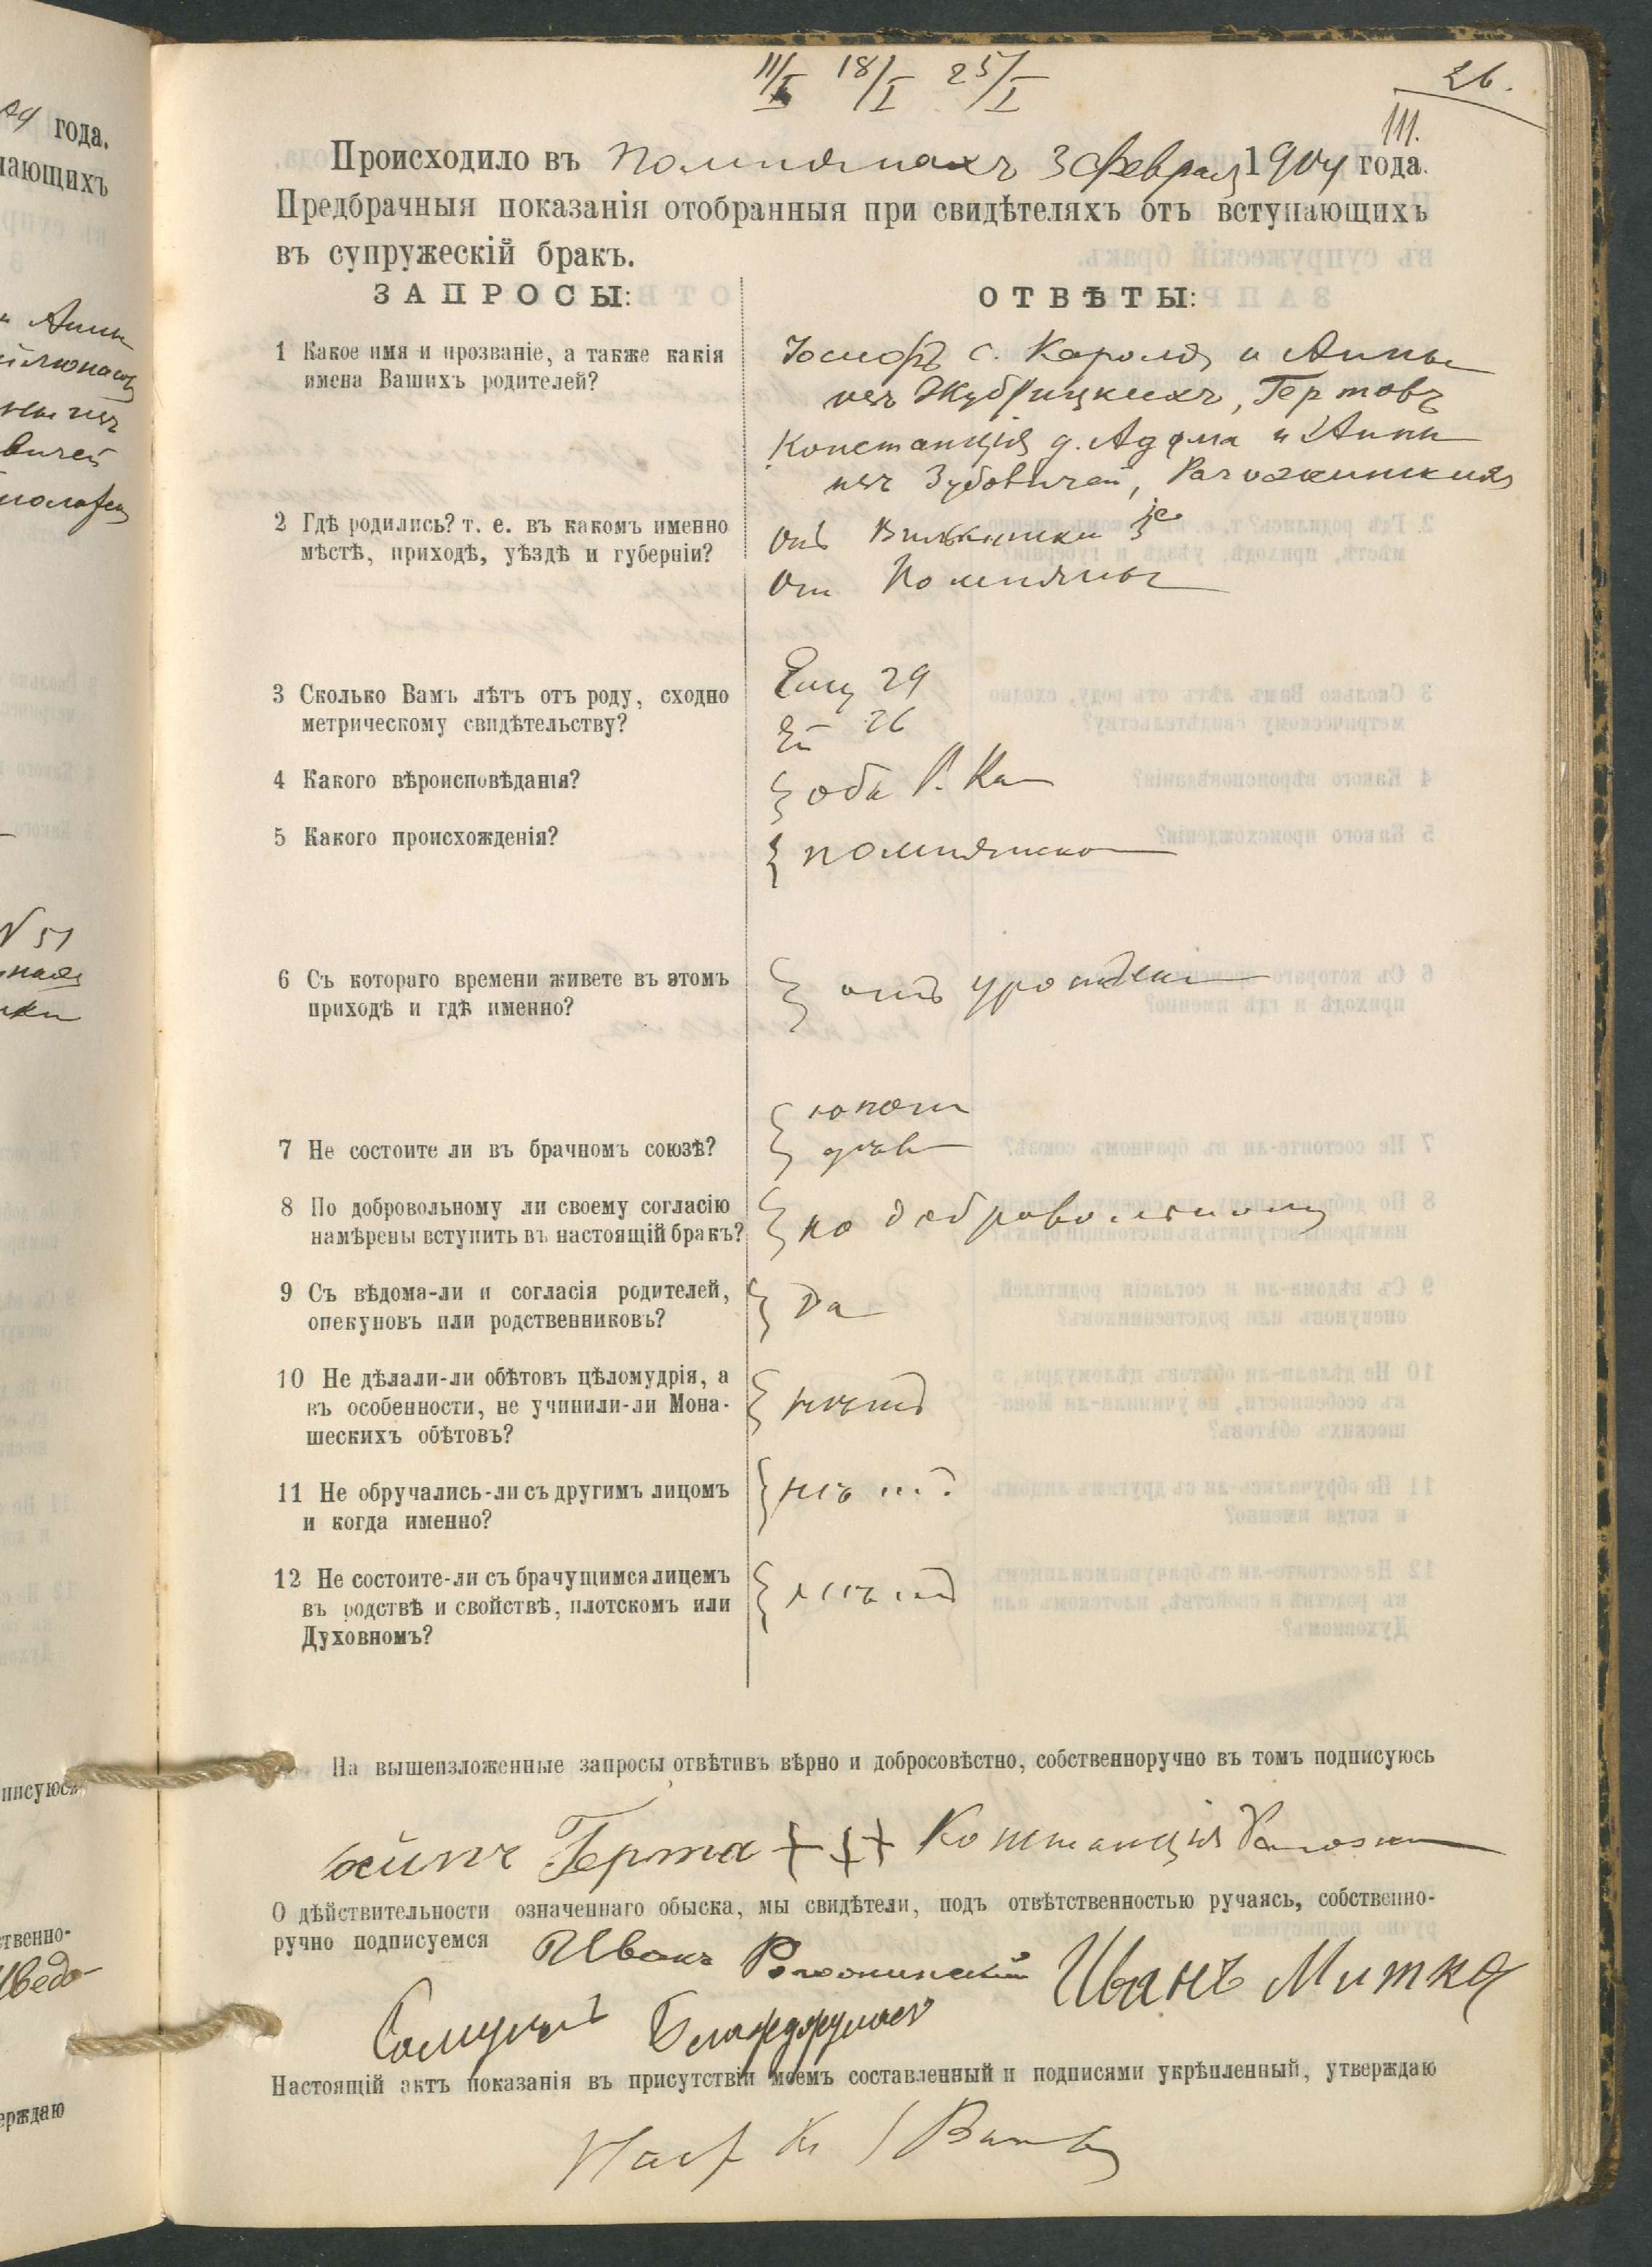 11/I 18/I 25/I
26.
III.
Происходило въ Помпянахъ 3 февраля 1904 года.
Предбрачныя показанія отобранныя при свидѣтеляхъ отъ вступающихъ
въ супружескій бракъ.
ЗАПРОСЫ:
ОТВѢТЫ:
1 Какое имя и прозваніе, а также какія
имена Вашихъ родителей?
Іосифъ с. Кароля и Анны
изъ Жубрицкихъ, Гертовъ
Констанція д. Адама и Анны
изъ Зубовичей,
2 Гдѣ родились? т. е. въ какомъ именно
мѣстѣ, приходѣ, уѣздѣ и губерніи?
онъ
она Помпяны
3 Сколько Вамъ лѣтъ отъ роду, сходно
метрическому свидѣтельству?
Ему 29
Ей 26
4 Какого вѣроисповѣданія?
оба Р. Ка
5 Какого происхожденія?
6 Съ котораго времени живете въ этомъ
приходѣ и гдѣ именно?
отъ урожден
7 Не состоите ли въ брачномъ союзѣ?
юнош
дѣв
8 По добровольному ли своему согласію
намѣрены вступить въ настоящій бракъ?
по добровольному
9 Съ вѣдома-ли и согласія родителей,
опекуновъ или родственниковъ?
Да
10 Не дѣлали-ли обѣтовъ цѣломудрія, а
въ особенности, не учинили-ли Мона-
шескихъ обѣтовъ?
нѣтъ
11 Не обручались-ли съ другимъ лицомъ
и когда именно?
нѣтъ
12 Не состоите-ли съ брачущимся лицемъ
въ родствѣ и свойствѣ, плотскомъ или
Духовномъ?
нѣтъ
На вышеизложенные запросы отвѣтивъ вѣрно и добросовѣстно, собственноручно въ томъ подписуюсь
Герта +++ Констанція
О дѣйствительности означеннаго обыска, мы свидѣтели, подъ отвѣтственностью ручаясь, собственно-
ручно подписуемся Иванъ Иванъ Митка
Настоящій актъ показанія въ присутствіи моемъ составленный и подписями укрѣпленный, утверждаю